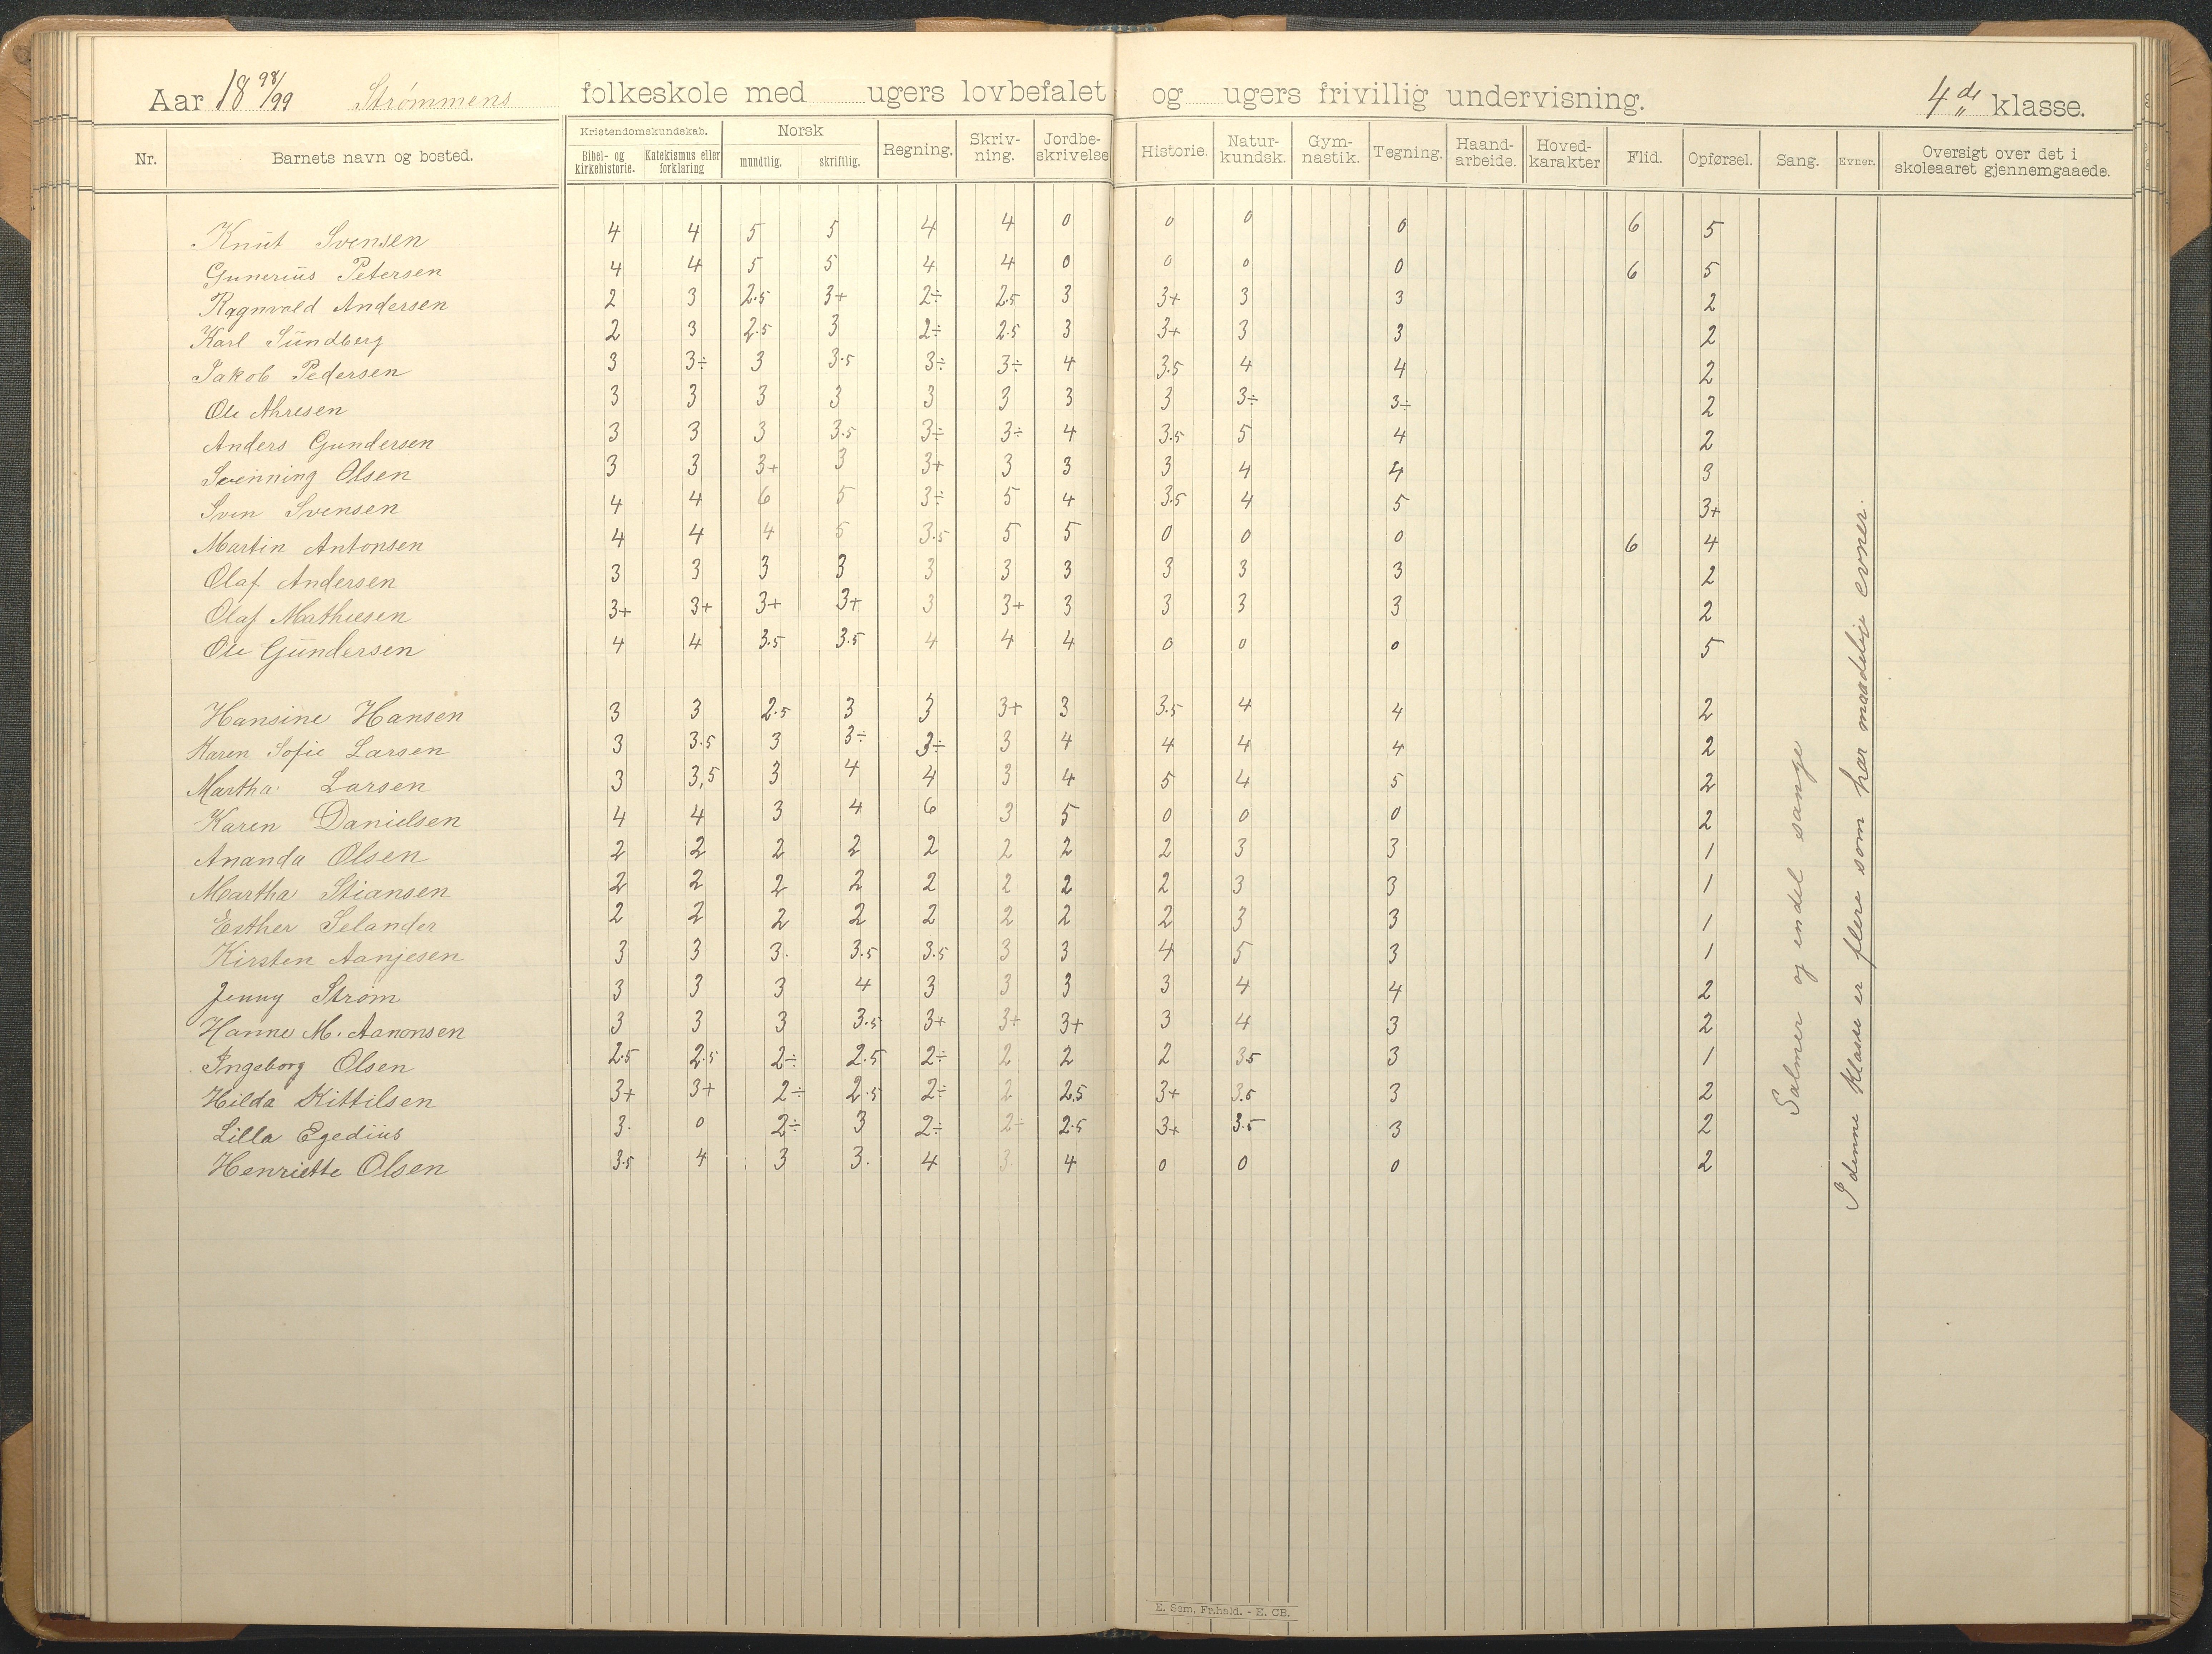 Aar 18 98/99 Strømmens folkeskole med ugers lovbefalet og ugers frivillig undervisning. 4de klasse.
Nr. Barnets navn og bosted. Kristendomskundskab. Bibel- og kirkehistorie. Katekismus eller forklaring Norsk mundtlig. skriftlig. Regning. Skriv-ning. Jordbe-skrivelse Historie. Natur-kundsk. Gym-nastik. Tegning. Haand-arbeide. Hoved-karakter Flid. Opførsel. Sang. Evner. Oversigt over det i skoleaaret gjennemgaaede.
Knut Svensen 4 4 5 5 4 4 0 0 0 0 6 5
Gunerius Petersen 4 4 5 5 4 4 0 0 0 0 6 5
Ragnvald Andersen 2 3 2.5 3+ 2÷ 2.5 3 3+ 3 3 2
Karl Sundberg 2 3 2.5 3 2÷ 2.5 3 3+ 3 3 2
Jakob Pedersen 3 3÷ 3 3.5 3÷ 3÷ 4 3.5 4 4 2
Ole Ahresen 3 3 3 3 3 3 3 3 3÷ 3÷ 2
Anders Gundersen 3 3 3 3.5 3÷ 3÷ 4 3.5 5 4 2
Svenning Olsen 3 3 3+ 3 3+ 3 3 3 4 4 3
Sven Svensen 4 4 6 5 3÷ 5 4 3.5 4 5 3+
Martin Antonsen 4 4 4 5 3.5 5 5 0 0 0 6 4
Olaf Andersen 3 3 3 3 3 3 3 3 3 3 2
Olaf Mathiesen 3+ 3+ 3+ 3+ 3 3+ 3 3 3 3 2
Ole Gundersen 4 4 3.5 3.5 4 4 4 0 0 0 5
Hansine Hansen 3 3 2.5 3 3 3+ 3 3.5 4 4 2
Karen Sofie Larsen 3 3.5 3 3÷ 3÷ 3 4 4 4 4 2
Martha Larsen 3 3,5 3 4 4 3 4 5 4 5 2
Karen Danielsen 4 4 3 4 6 3 5 0 0 0 2
Ananda Olsen 2 2 2 2 2 2 2 2 3 3 1
Martha Stiansen 2 2 2 2 2 2 2 2 3 3 1
Esther Selander 2 2 2 2 2 2 2 2 3 3 1
Kirsten Aanjesen 3 3 3. 3.5 3.5 3 3 4 5 3 1
Jenny Strøm 3 3 3 4 3 3 3 3 4 4 2
Hanne M. Aanonsen 3 3 3 3.5 3+ 3+ 3+ 3 4 3 2
Ingeborg Olsen 2.5 2.5 2÷ 2.5 2÷ 2 2 2 3.5 3 1
Hilda Kittilsen 3+ 3+ 2÷ 2.5 2÷ 2 2.5 3+ 3.5 3 2
Lilla Egedius 3. 0 2÷ 3 2÷ 2÷ 2.5 3+ 3.5 3 2
Henriette Olsen 3.5 4 3 3. 4 3 4 0 0 0 2
Salmer og endel sange
I denne klasse er flere som har maadelige evner.
E. Sem. Fr.hald. - E. CB.